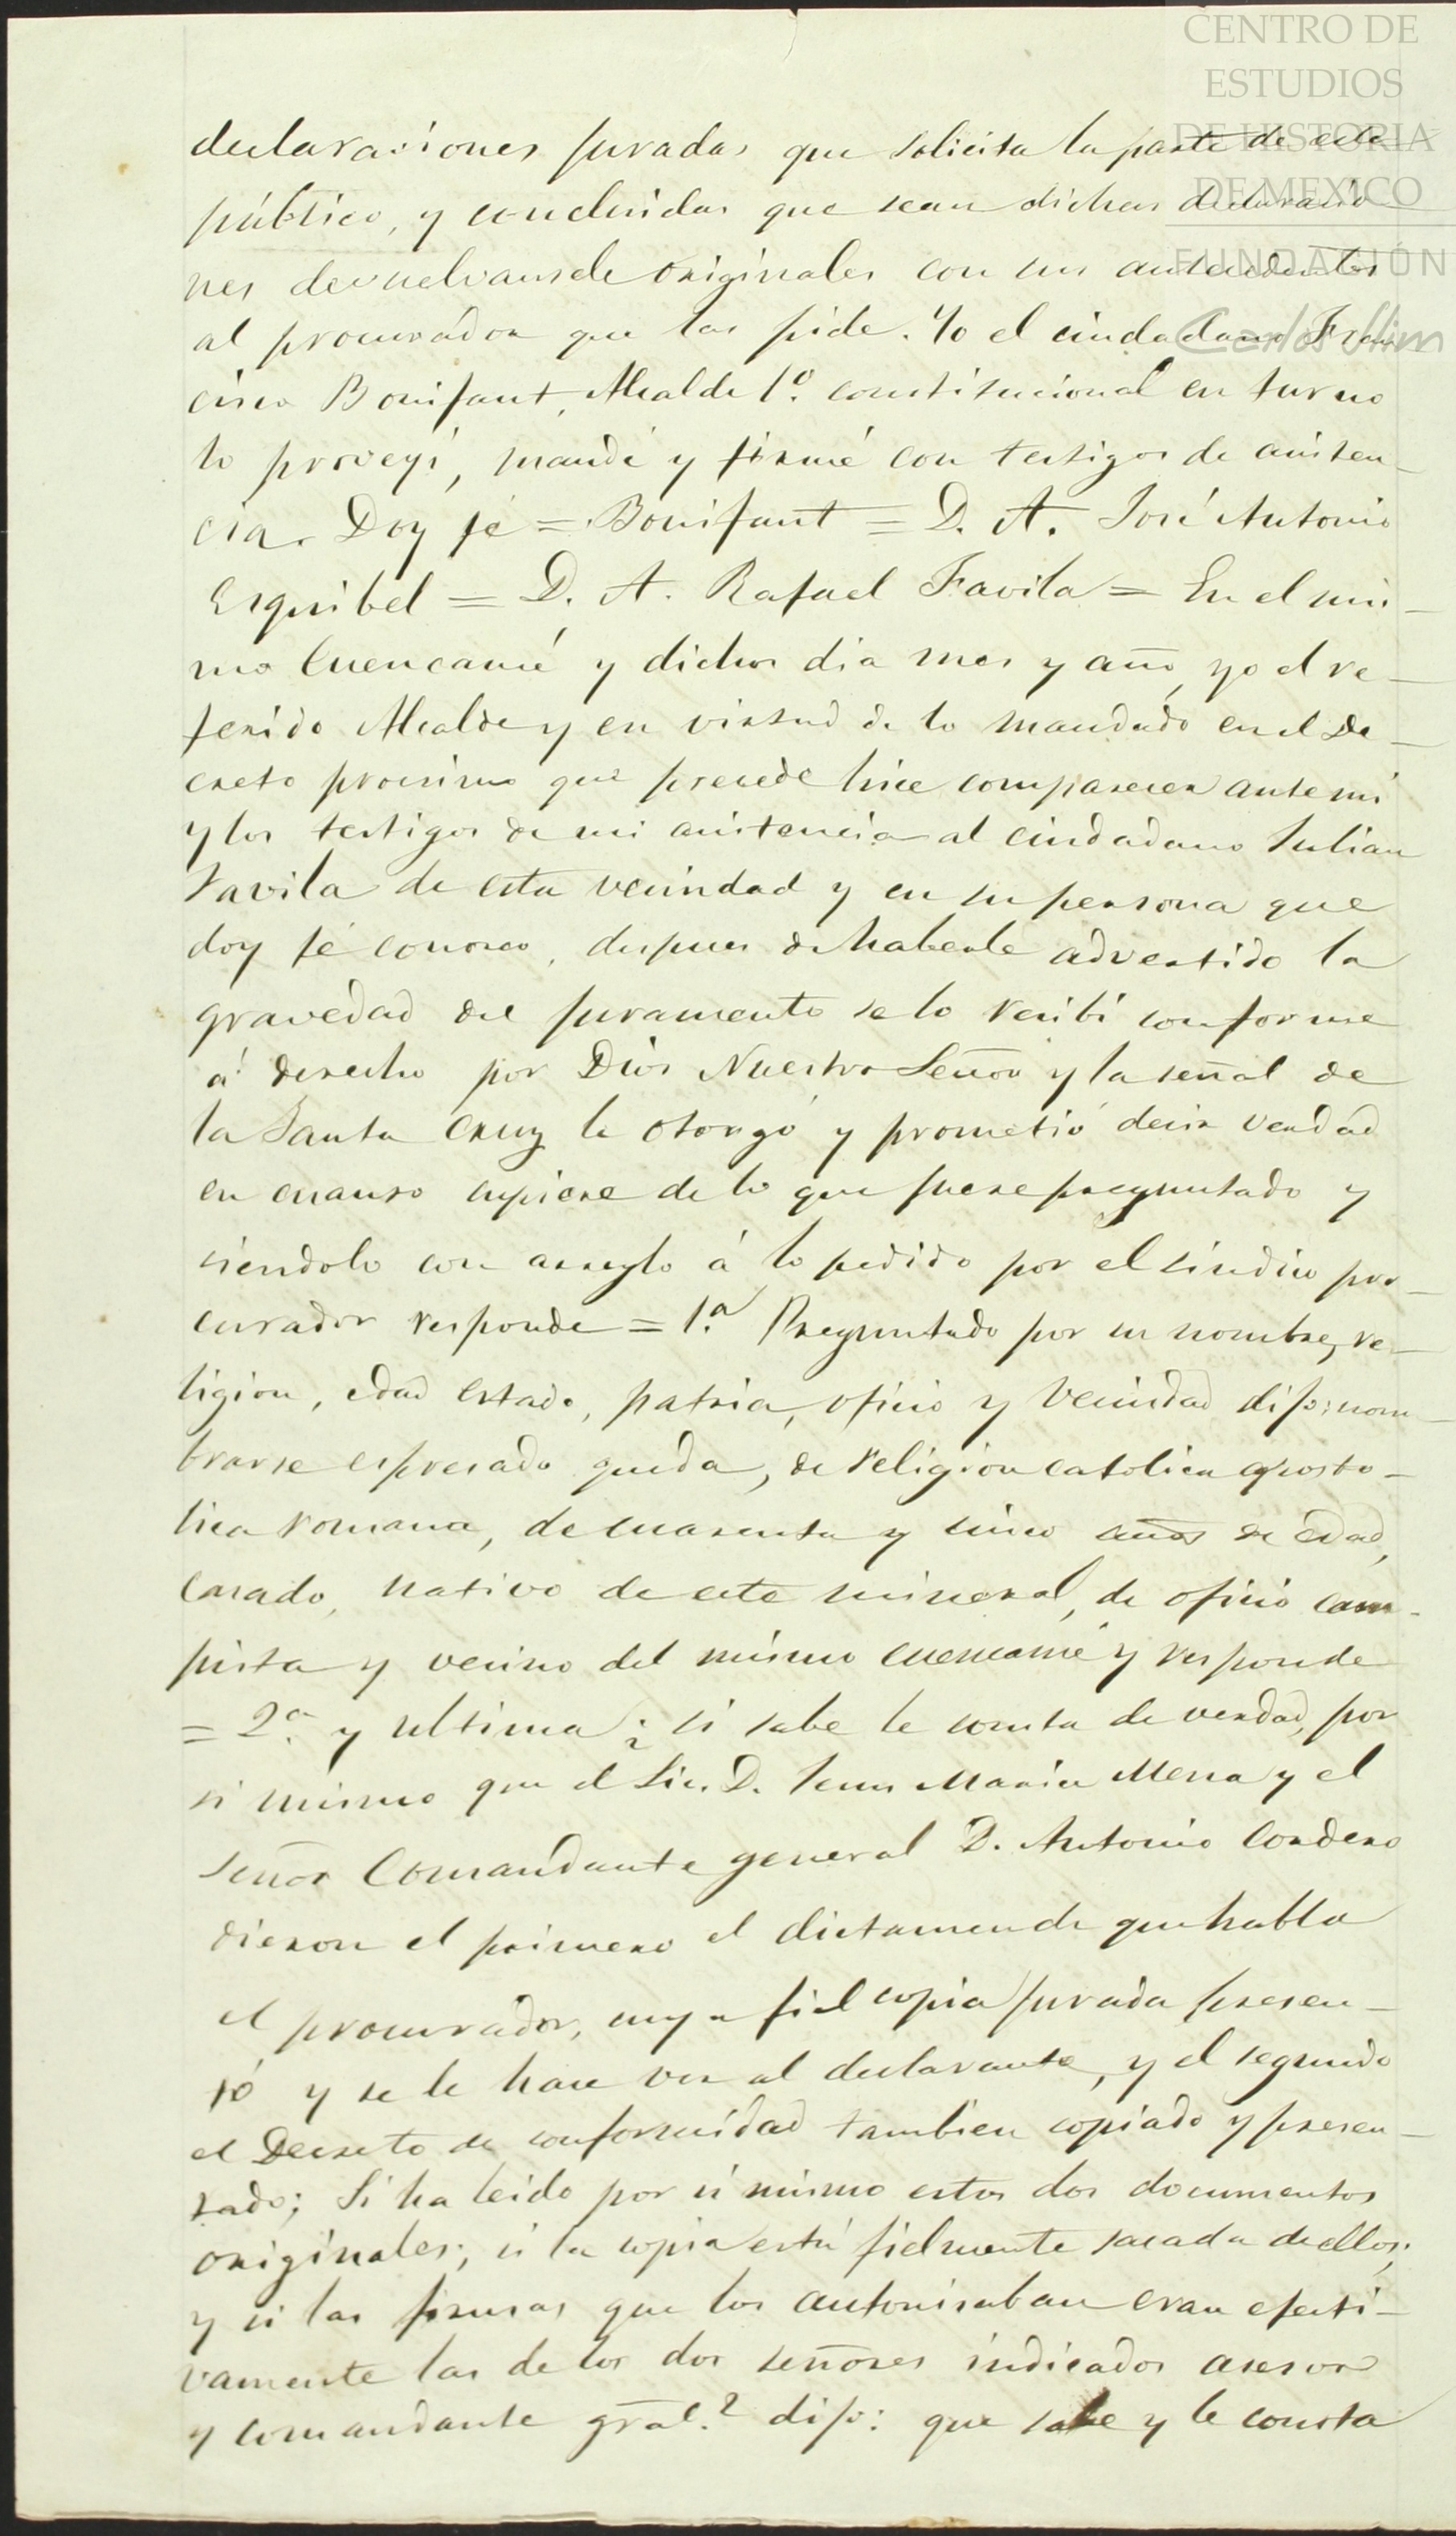 CENTRO DE
ESTUDIOS
DE HISTORIA
DE MEXICO
FUNDACIÓN
Carlos Slim
declaraciones juradas que solicita la parte de este
público, y concluidas que sean dichas declaracio
nes devuelvansele originales con sus antecedentes
al procurador que las pide. Yo el ciudadano Fran
cisco Bonifant, Alcalde 1º. constitucional en turno
lo proveyi, mandé y firmé con testigos de asisten-
cia. Doy fé = Bonifant = D. A. José Antonio
Esquibel = D. A. Rafael Favila = En el mis-
mo Cuencamé y dichos dia mes y año, yo el re-
ferido Alcalde y en virtud de lo mandado en el De-
creto procsimo que precede hice comparecer ante mi
y los testigos de mi asistencia al ciudadano Julian
Favila de esta vecindad y en su persona que
doy fé conosco, despues de haberle advertido la
gravedad del juramento se lo recibí conforme
á derecho por Dios Nuestro Señor y la señal de
la Santa Cruz le otorgó y prometió decir verdad
en cuanto supiere de lo que fuere preguntado y
siendolo con arreglo á lo pedido por el sindico pro-
curador responde = 1.ª Preguntado por su nombre, re-
ligion, edad estado, patria, oficio y vecindad dijo: nom-
brarse espresado queda, de religion catolica aposto-
lica romana, de cuarenta y cinco años de edad,
casado, nativo de este mineral, de oficio cam-
pista y vecino del mismo Cuencamé y responde
= 2.ª y ultima ¿ si sabe le consta de verdad, por
si mismo que el Lic. D. Juan Maria Mena y el
Señor Comandante general D. Antonio Cordero
dieron el primero el dictamen de que habla
el procurador, cuya fiel copia jurada presen-
tó y se le hace ver al declarante, y el segundo
el Decreto de conformidad tambien copiado y presen-
tado; Si ha leido por si mismo estos dos documentos
originales; si la copia está fielmente sacada de ellos;
y si las firmas que los autorisaban eran efecti-
vamente las de los dos señores indicados asesor
y comandante gral.? dijo: que sabe y le consta